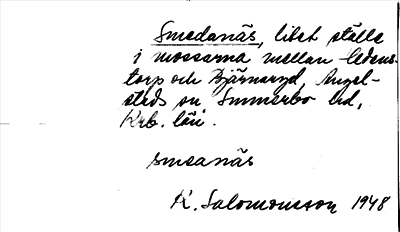 Smedanäs, litet ställe
i mossarna mellan Edens-
torp och Björnaryd, Angel-
steds sn, Sunnerbo hd,
Krb. län.
smeanäs
K. Salomonsson 1948